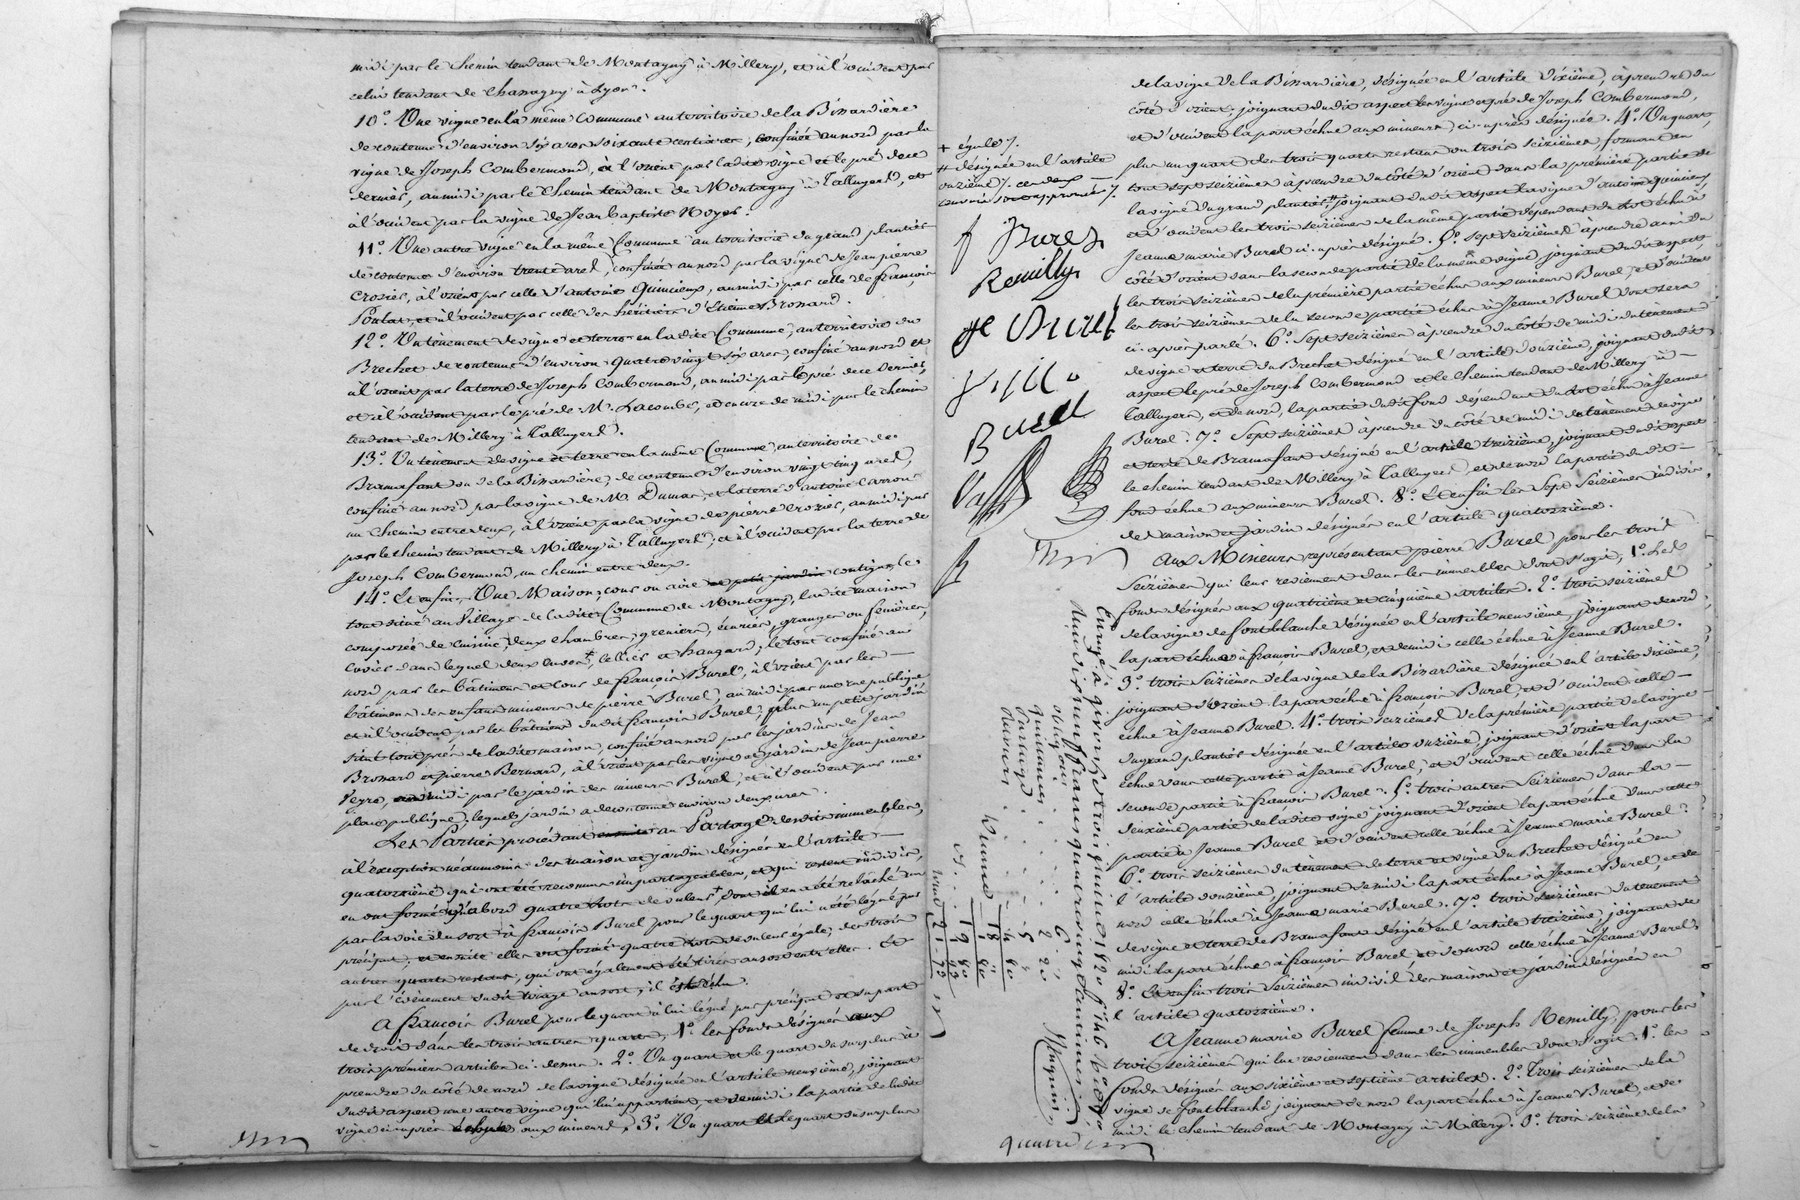 midi par le chemin tendant de Montagny à Millery, et à l'occident par
celui tendant de Chassagny à Lyon.
10° Une vigne en la même Commune au territoire de la Binardière
de contenue d'environ six ares soixante centiares, confinée au nord par la
vigne de Joseph Combermond, à l'orient par ladite vigne et le pré de ce
dernier, au midi par le chemin tendant de Montagny à Talluyers, et
à l'occident par la vigne de Jean Baptiste Noyer.
11° Une autre vigne en la même Commune au territoire du grand plantier
de contenue d'environ trente ares, confinée au nord par la vigne de Jean pierre
Crozier, à l'orient par celle d'antoine Quincieux, au midi par celle de françois
Poulat, et à l'occident par celle des héritiers d'Etienne Bronard.
12° Un tènement de vigne et terre en ladite Commune, au territoire du
Brechet de contenue d'environ quatre vingt six ares, confiné au nord et
à l'orient par la terre de Joseph Combermond, au midi par le pré de ce dernier,
et à l'occident par le pré de M. Lacombe, et encore de midi par le chemin
tendant de Millery à Talluyers.
13° Un tènement de vigne et terre en la même Commune au territoire de
Bramafant ou de la Binardière, de contenue d'environ vingt cinq ares,
confiné au nord par la vigne de M. Dumas et la terre d'antoine Carron
un chemin entre deux, à l'orient par la vigne de pierre Crozier, au midi par
par le chemin tendant de Millery à Talluyers, et à l'occident par la terre de
Joseph Combermond, un chemin entre deux.
14° Et enfin, Une Maison, cour ou aire et petit jardin contigus, le
tout situé au Village de ladite Commune de Montagny, ladite maison
composée de cuisine, deux chambres, greniers, écuries, granges ou fenières,
cuvier dans lequel deux cuves, cellier et hangard, le tout confiné au
nord par les bâtimens et cour de françois Burel, à l'orient par les
bâtimens des enfans mineurs de pierre Burel, au midi par une rue publique
et à l'occident par les bâtimens dudit françois Burel; plus un petit jardin
situé tout près de ladite maison, confiné au nord par les jardins de Jean
Bronard et pierre Bernard, à l'orient par les vigne et jardin de Jean pierre
Peyre, au midi par le jardin des mineurs Burel, et à l'occident par une
place publique, lequel jardin a de contenue environ deux ares.
Les Parties procédant ensuite au Partage desdits immeubles,
à l'exception néanmoins des maison et jardin désignés en l'article
quatorzième qui ont été reconnus impartageables, et qui restent indivis,
en ont formé d'abord quatre lots de valeur, dont il en a été relâché un
par la voie du sort à françois Burel pour le quart qui lui a été légué par
préciput, et ensuite elles ont formé quatre lots de valeur égale, des trois
autres quarts restans, qui ont également été tirés au sort entr'elles. Et
par l'événement dudit tirage au sort, il est échu.
A françois Burel pour le quart à lui légué par préciput et sa part
de droit dans les trois autres quarts, 1° les fonds désignés aux
trois premiers articles ci-dessus. 2° Un quart et le quart du surplus à
prendre du côté de nord de la vigne désignée en l'article neuvième, joignant
dudit aspect une autre vigne qui lui appartient, et de midi la partie de ladite
vigne ci-après échue aux mineurs. 3° Un quart et le quart du surplus
de la vigne de la Binardière, désignée en l'article dixième, à prendre du
côté d'orient, joignant dudit aspect les vigne et pré de Joseph Combermond,
et d'occident la part échue aux mineurs ci-après désignée. 4° Un quart,
plus un quart des trois quarts restans ou trois seizièmes, formant en
tout sept seizièmes à prendre du côté d'orient dans la première partie de
la vigne du grand plantier, joignant dudit aspect la vigne d'antoine Quincieux
et d'occident les trois seizièmes de la même partie dépendans du lot échu à
Jeanne marie Burel ci-après désigné. 5° Sept seizièmes à prendre aussi du
côté d'orient dans la seconde partie de la même vigne, joignant dudit aspect
les trois seizièmes de la première partie échue aux mineurs Burel, et d'occident
les trois seizièmes de la seconde partie échue à Jeanne Burel dont sera
ci-après parlé. 6° Sept seizièmes à prendre du côté de midi du tènement
de vigne et terre du Brechet désigné en l'article douzième, joignant dudit
aspect le pré de Joseph Combermond et le chemin tendant de Millery à
Talluyers, et de nord, la partie dudit fond dépendant du lot échu à Jeanne
Burel. 7° Sept seizièmes à prendre du côté de midi du tènement de vigne
et terre de Bramafant désigné en l'article treizième, joignant dudit aspect
le chemin tendant de Millery à Talluyers, et de nord la partie dudit
fond échue aux mineurs Burel. 8° Et enfin les Sept Seizièmes indivis
des maison et jardin désignés en l'article quatorzième.
Aux Mineurs représentant pierre Burel pour les trois
Seizièmes qui leur reviennent dans les immeubles dont s'agit, 1° Les
fonds désignés aux quatrième et cinquième articles. 2° trois seizièmes
de la vigne de fontblanche désignée en l'article neuvième, joignant de nord
la part échue à françois Burel, et de midi celle échue à Jeanne Burel.
3° trois Seizièmes de la vigne de la Binardière désignée en l'article dixième,
joignant d'orient la part échue à françois Burel, et d'occident celle
échue à Jeanne Burel. 4° trois seizièmes de la première partie de la vigne
du grand plantier désignée en l'article onzième, joignant d'orient la part
échue dans cette partie à Jeanne Burel, et d'occident celle échue dans la
seconde partie à françois Burel. 5° trois autres Seizièmes dans la
deuxième partie de ladite vigne joignant d'orient la part échue dans cette
partie à Jeanne Burel et d'occident celle échue à Jeanne marie Burel.
6° trois seizièmes du tènement de terre et vigne du Brechet désigné en
l'article douzième, joignant de midi la part échue à Jeanne Burel, et de
nord celle échue à Jeanne marie Burel. 7° trois Seizièmes du tènement
de vigne et terre de Bramafant désigné en l'article treizième, joignant de
midi la part échue à françois Burel, et de nord celle échue à Jeanne Burel.
8° Et enfin trois Seizièmes indivis des maison et jardin désignés en
l'article quatorzième.
A Jeanne marie Burel femme de Joseph Remilly, pour les
trois seizièmes qui lui reviennent dans les immeubles dont s'agit. 1° les
fonds désignés aux sixième et septième articles. 2° Trois seizièmes de la
vigne de fontblanche joignant de nord la part échue à Jeanne Burel, et de
midi le chemin tendant de Montagny à Millery. 3° trois seizièmes de la
+ égale /.
# désignée en l'article
onzième /. ces deux
renvois sont approuvés /.
f Burel
Remilly
je Burel
Burel